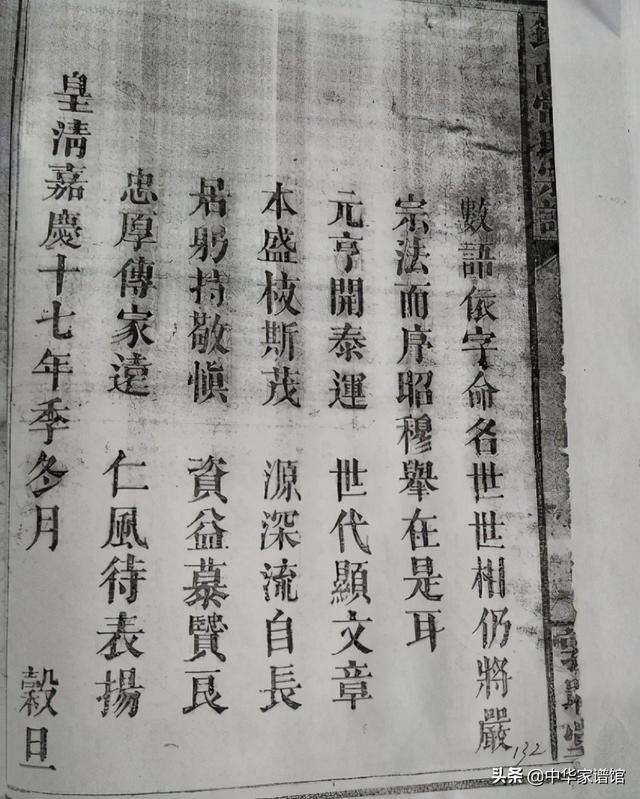 數語依字命名世世相仍將嚴
宗法而序昭穆舉在是耳
元亨開泰運 世代顯文章
本盛枝斯茂 源深流自長
居躬持敬慎 資益慕賢良
忠厚傳家遠 仁風待表揚
皇淸嘉慶十七年季冬月 穀旦
132
头条 @中华家谱馆